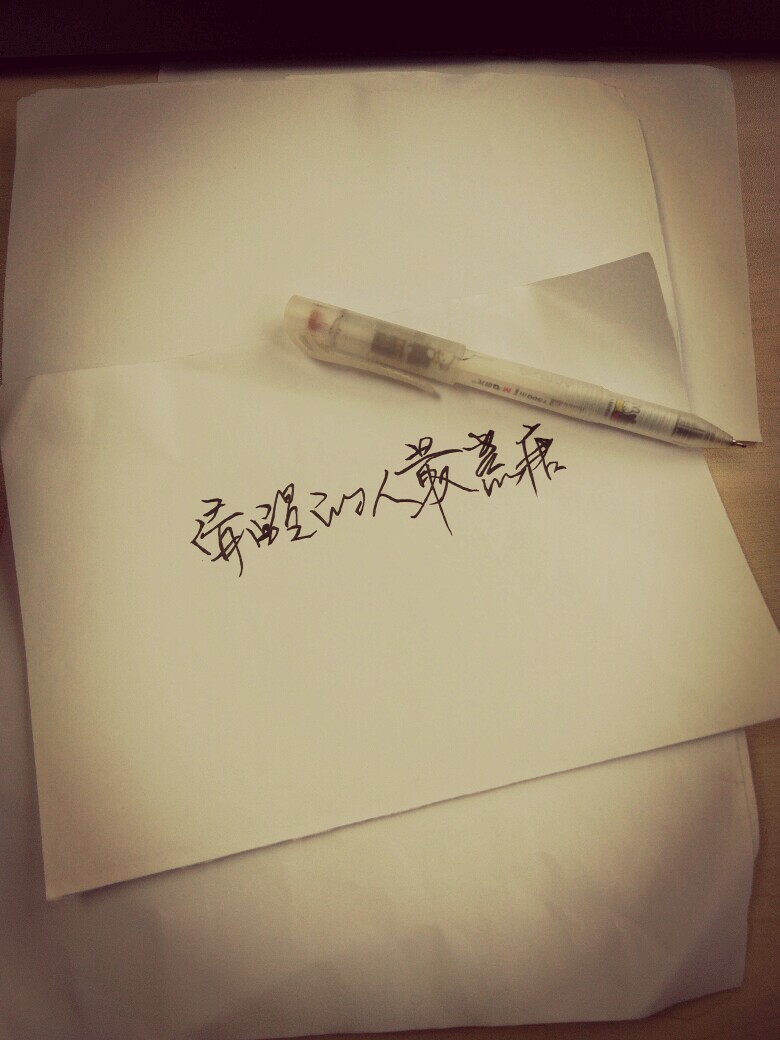 清醒的人最荒唐